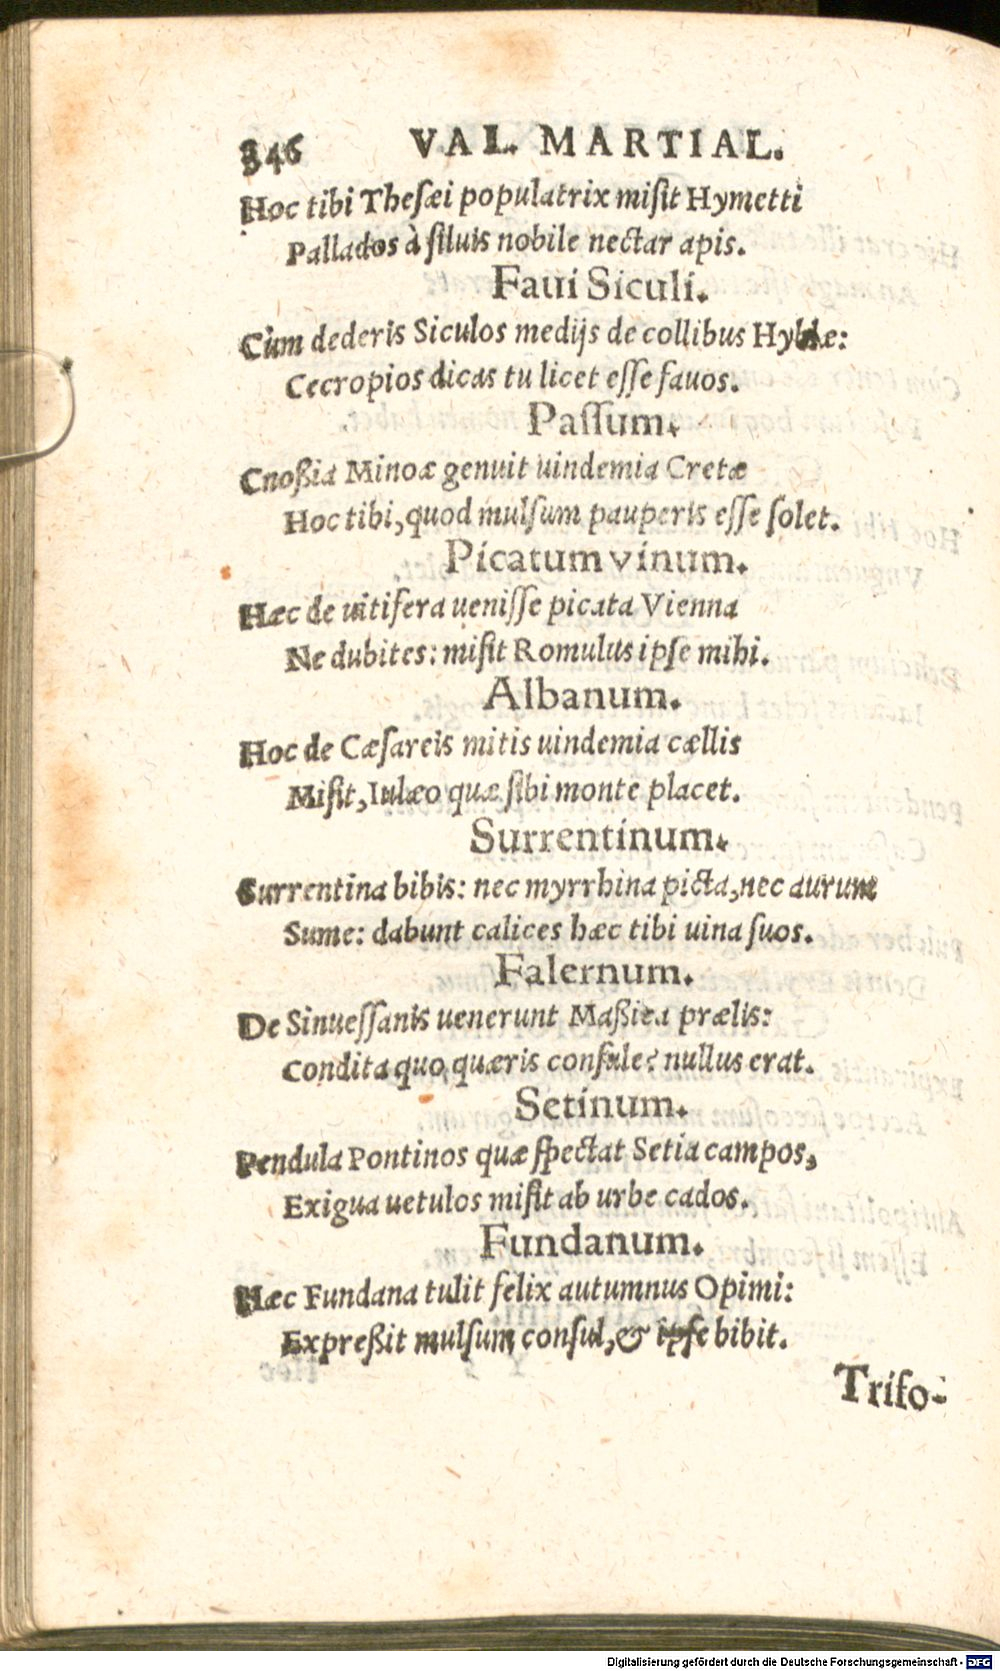 346 VAL. MARTIAL.
Hoc tibi Thesæi populatrix misit Hymetti
Pallados à siluis nobile nectar apis.
Faui Siculi.
Cùm dederis Siculos medijs de collibus Hyblæ:
Cecropios dicas tu licet esse fauos.
Passum.
Cnoßia Minoæ genuit uindemia Cretæ
Hoc tibi, quod mulsum pauperis esse solet.
Picatum vinum.
Hæc de uitifera uenisse picata Vienna
Ne dubites: misit Romulus ipse mihi.
Albanum.
Hoc de Cæsareis mitis uindemia cællis
Misit, Iulæo quæ sibi monte placet.
Surrentinum.
Surrentina bibis: nec myrrhina picta, nec aurum
Sume: dabunt calices hæc tibi uina suos.
Falernum.
De Sinuessanis uenerunt Maßica prælis:
Condita quo quæris consule? nullus erat.
Setinum.
Pendula Pontinos quæ spectat Setia campos,
Exigua uetulos misit ab urbe cados.
Fundanum.
Hæc Fundana tulit felix autumnus Opimi:
Expreßit mulsum consul, & ipse bibit.
Trifo-
Digitalisierung gefördert durch die Deutsche Forschungsgemeinschaft - DFG